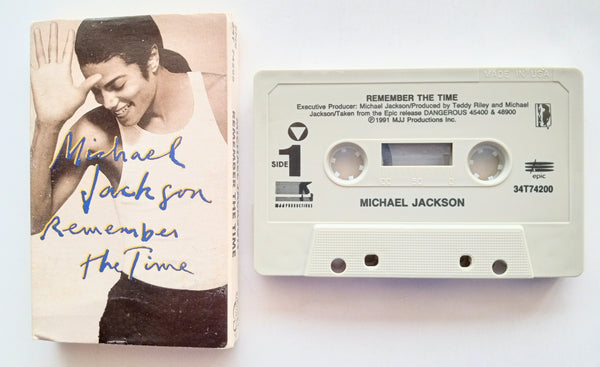 Michael
Jackson
Remember
the Time
REMEMBER THE TIME
MADE IN U.S.A.
REMEMBER THE TIME
Executive Producer: Michael Jackson/Produced by Teddy Riley and Michael
Jackson/Taken from the Epic release DANGEROUS 45400 & 48900
℗1991 MJJ Productions Inc.
SIDE 1
MJJ PRODUCTIONS
epic
34T74200
MICHAEL JACKSON